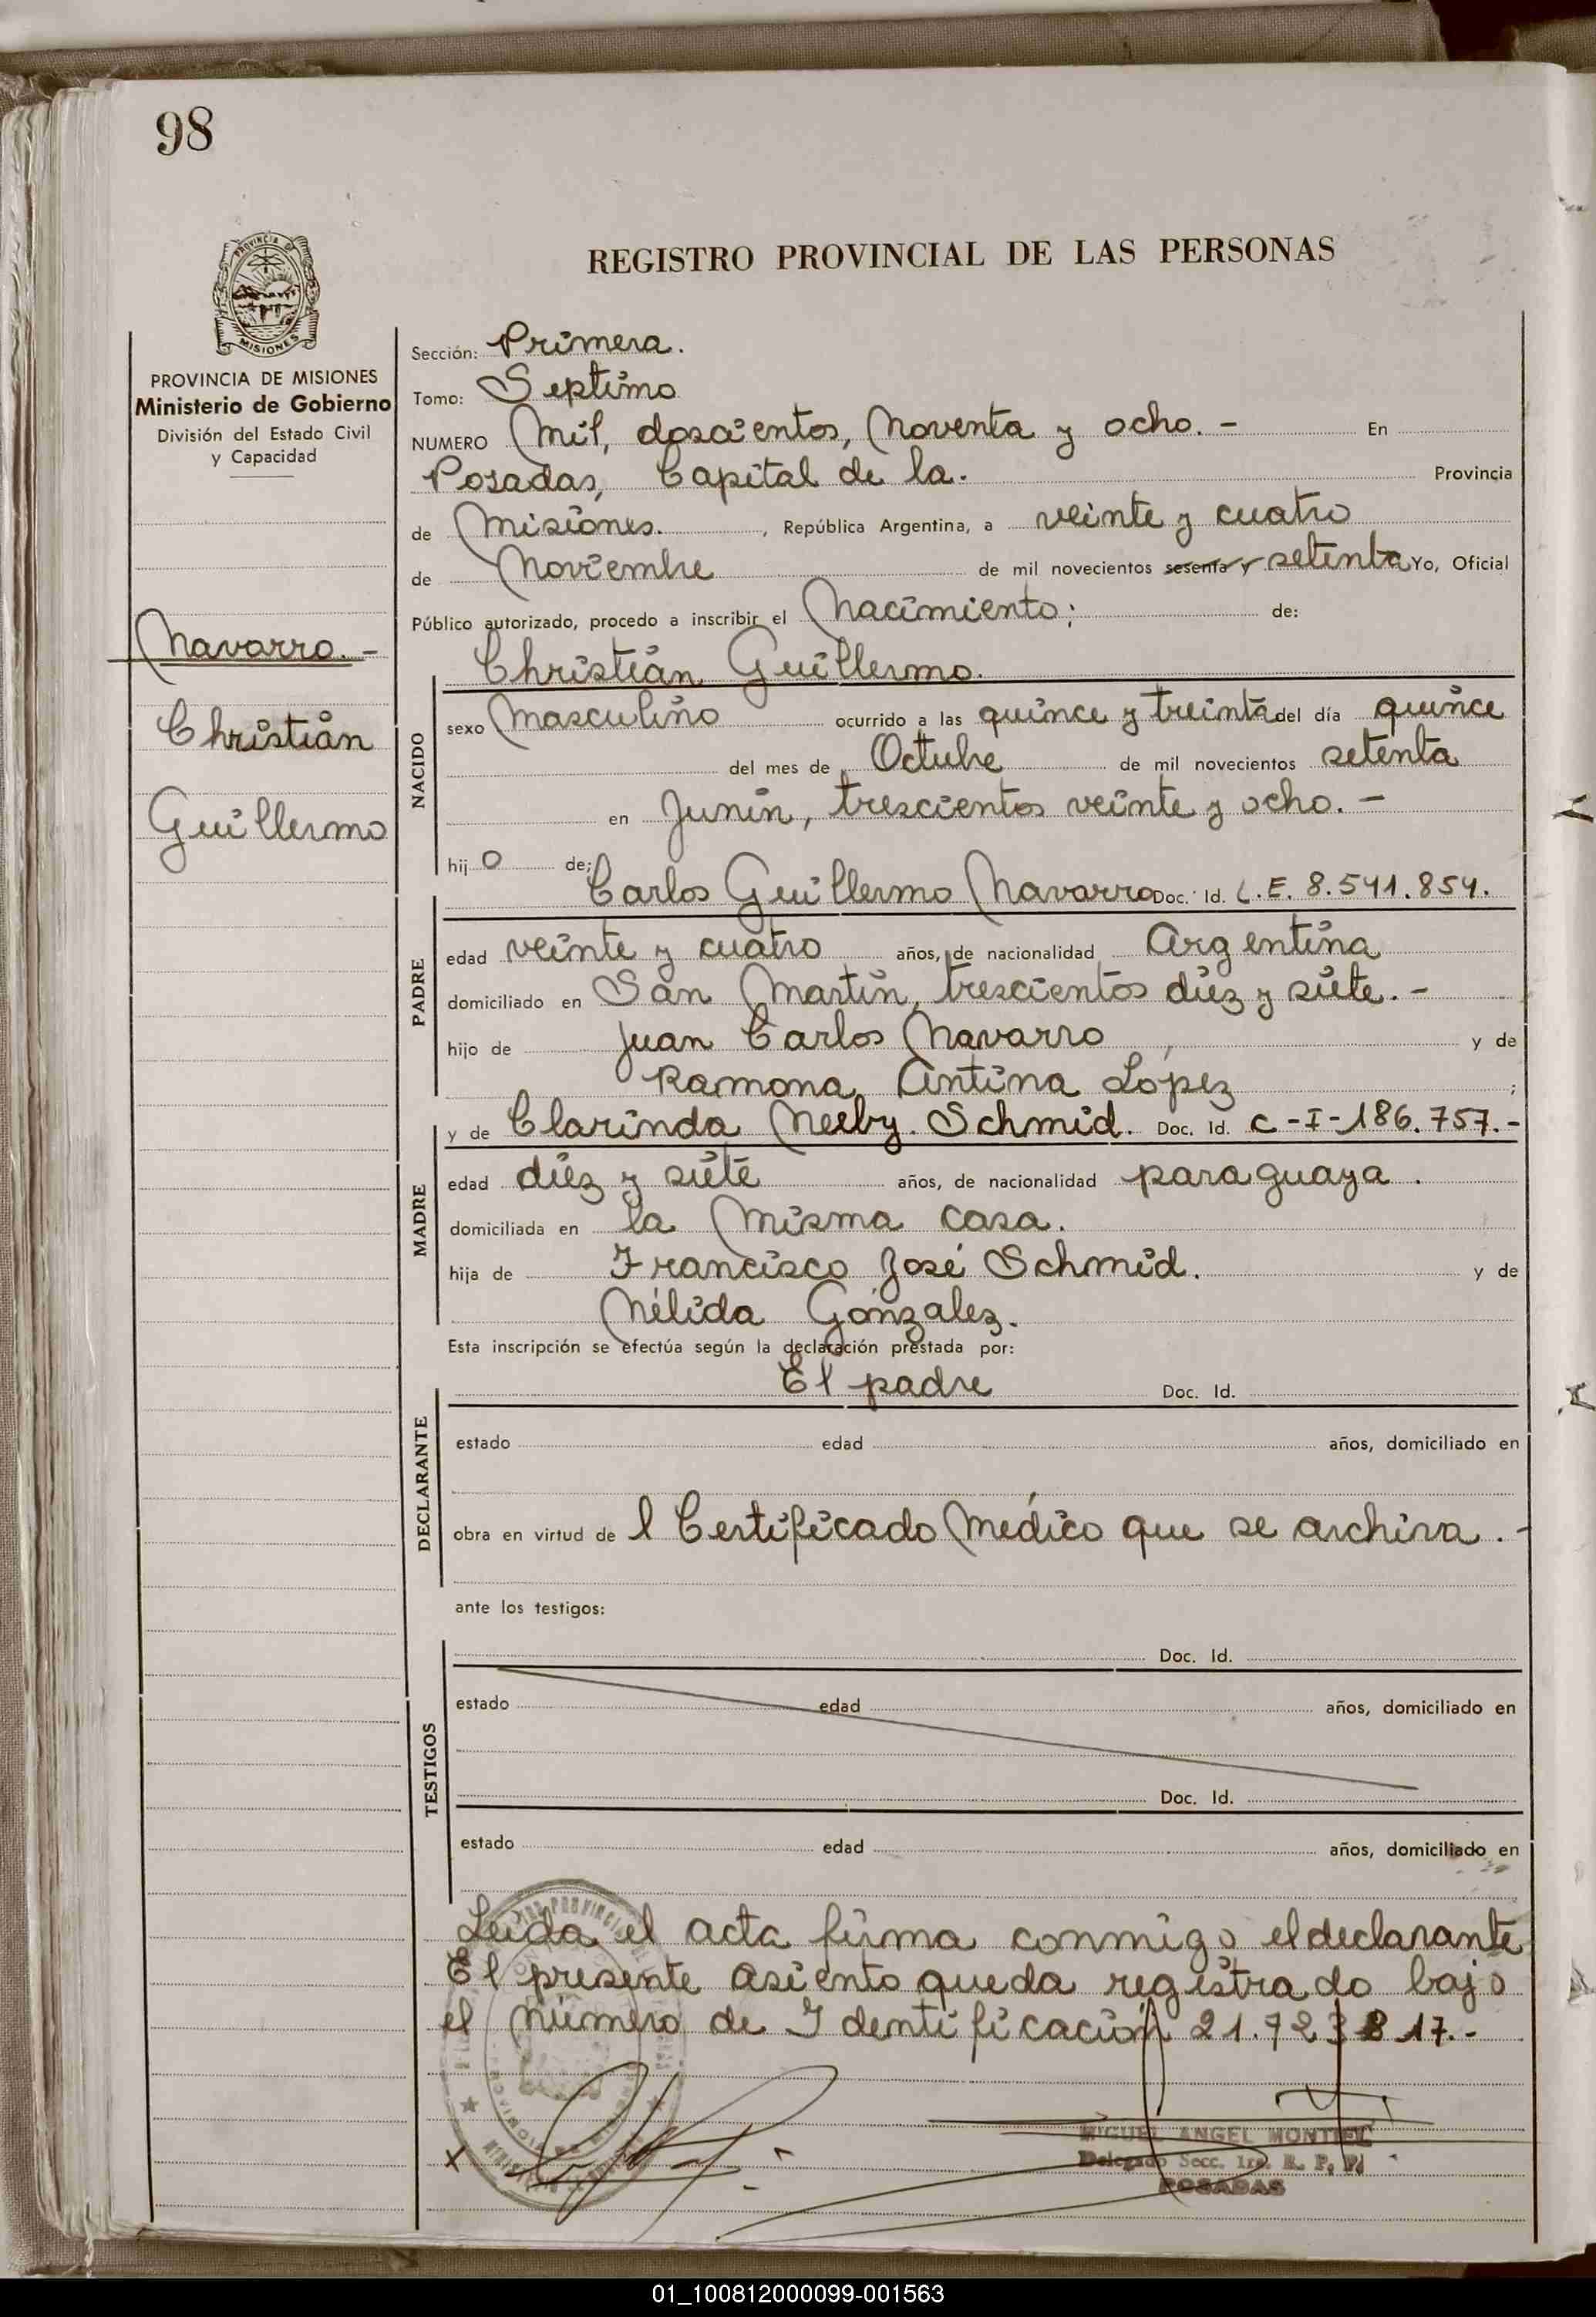 98
PROVINCIA DE MISIONES
Ministerio de Gobierno
División del Estado Civil
y Capacidad
Navarro.-
Christián
Guillermo
REGISTRO PROVINCIAL DE LAS PERSONAS
Sección: Primera.
Tomo: Septimo
NUMERO Mil, doscientos, Noventa y ocho.- En
Posadas, Capital de la. Provincia
de Misiones. , República Argentina, a veinte y cuatro
de Noviembre de mil novecientos sesenta y setenta Yo, Oficial
Público autorizado, procedo a inscribir el Nacimiento; de:
Christián Guillermo.
NACIDO
sexo Masculino ocurrido a las quince y treinta del día quince
del mes de Octubre de mil novecientos setenta
en Junín, trescientos veinte y ocho.-
hij o de:
PADRE
Carlos Guillermo Navarro Doc. Id. L.E. 8.541.854.
edad veinte y cuatro años, de nacionalidad Argentina
domiciliado en San Martín, trescientos diez y siete.-
hijo de Juan Carlos Navarro , y de
Ramona Antina López ;
MADRE
y de Clarinda Nelby. Schmid. Doc. Id. C-I-186.757.-
edad diez y siete años, de nacionalidad paraguaya.
domiciliada en la Misma casa.
hija de Francisco José Schmid. y de
Nélida Gónzalez.
Esta inscripción se efectúa según la declaración prestada por:
DECLARANTE
El padre Doc. Id.
estado edad años, domiciliado en
obra en virtud de l Certificado Médico que se archiva.-
ante los testigos:
TESTIGOS
Doc. Id.
estado edad años, domiciliado en
Doc. Id.
estado edad años, domiciliado en
Leida el acta firma conmigo el declarante
El presente asiento queda registrado bajo
el número de Identificación 21.723 817.-
MIGUEL ANGEL MONTIEL
Delegado Secc. 1ra. R. P. P.
POSADAS
01_100812000099-001563